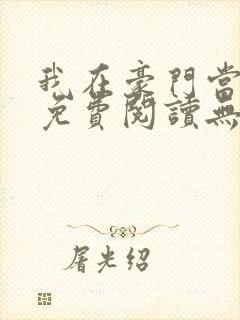 我在豪門當
免費閱讀無
屠光绍